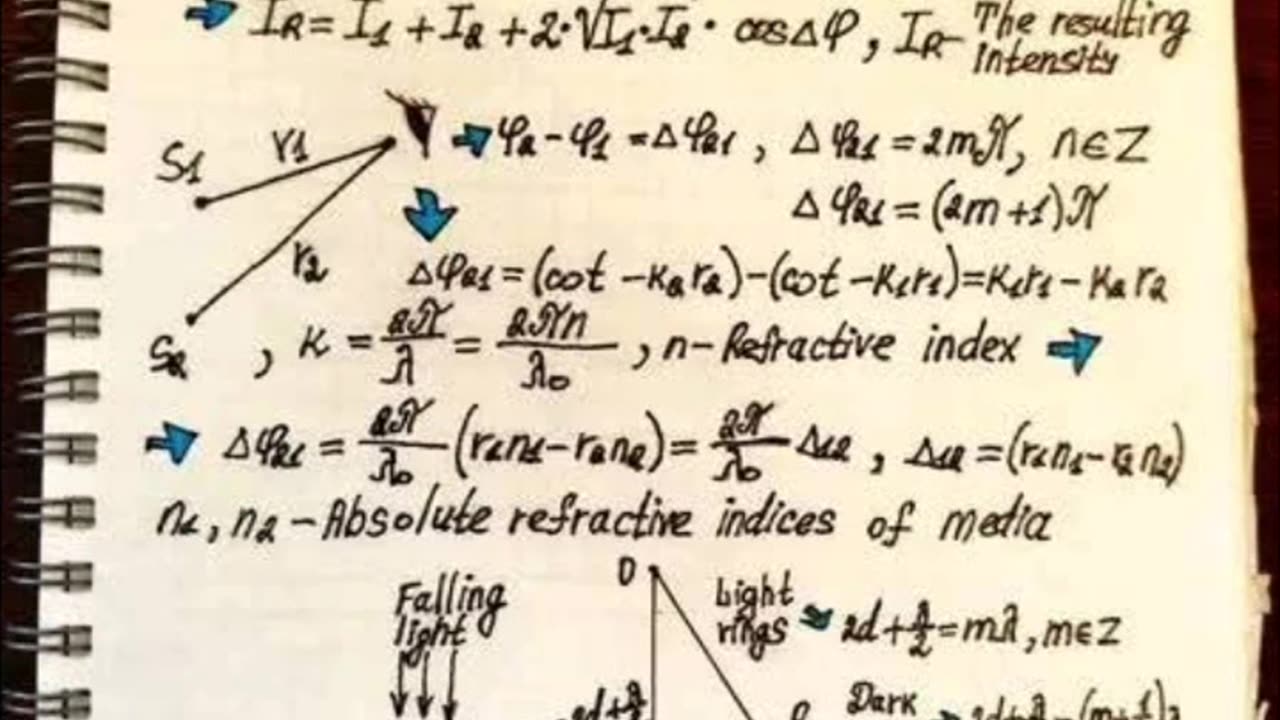 I_R = I_1 + I_2 + 2·√I_1·I_2 · cosΔφ, I_R – The resulting intensity
S1 r1 φ_2 – φ_1 = Δφ_21, Δφ_21 = 2mπ, n∈Z
Δφ_21 = (2m+1)π
r2 Δφ_21 = (ωt – k_2r_2) – (ωt – k_1r_1) = k_1r_1 – k_2r_2
S2, k = 2π/λ = 2πn/λ_0, n – Refractive index
Δφ_21 = 2π/λ_0 (r_1n_1 – r_2n_2) = 2π/λ_0 Δ_12, Δ_12 = (r_1n_1 – r_2n_2)
n_1, n_2 – Absolute refractive indices of media
Falling light
O
Light rings 2d + λ/2 = mλ, m∈Z
Dark